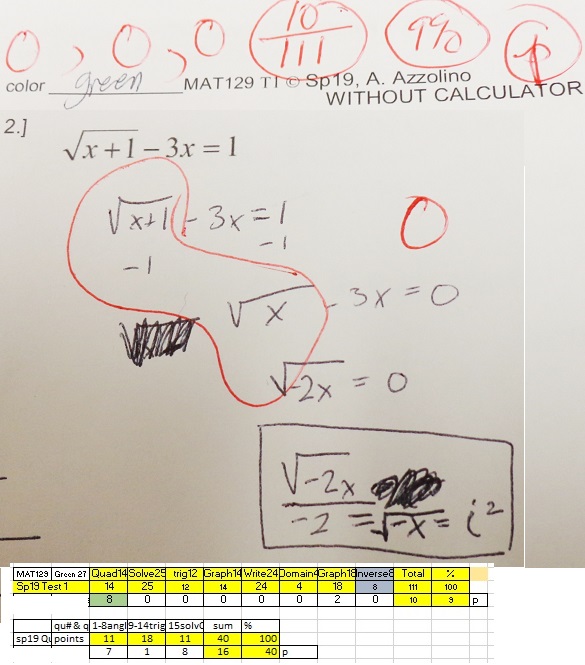 0 , 0 , 0 10/111 9% p
color green MAT129 TI © Sp19, A. Azzolino
WITHOUT CALCULATOR
2.] √x+1 − 3x = 1
√x+1 − 3x = 1
−1 −1
0
√x − 3x = 0
√-2x = 0
√-2x / -2 = √-x = i²
MAT129 Green 27 Quad14 Solve25 trig12 Graph14 Write24 Domain4 Graph18 Inverse8 Total %
Sp19 Test 1 14 25 12 14 24 4 18 8 111 100
8 0 0 0 0 0 2 0 10 9 p
qu# & q 1-8angl 9-14trig 15solv sum %
sp19 Qu points 11 18 11 40 100
7 1 8 16 40 p